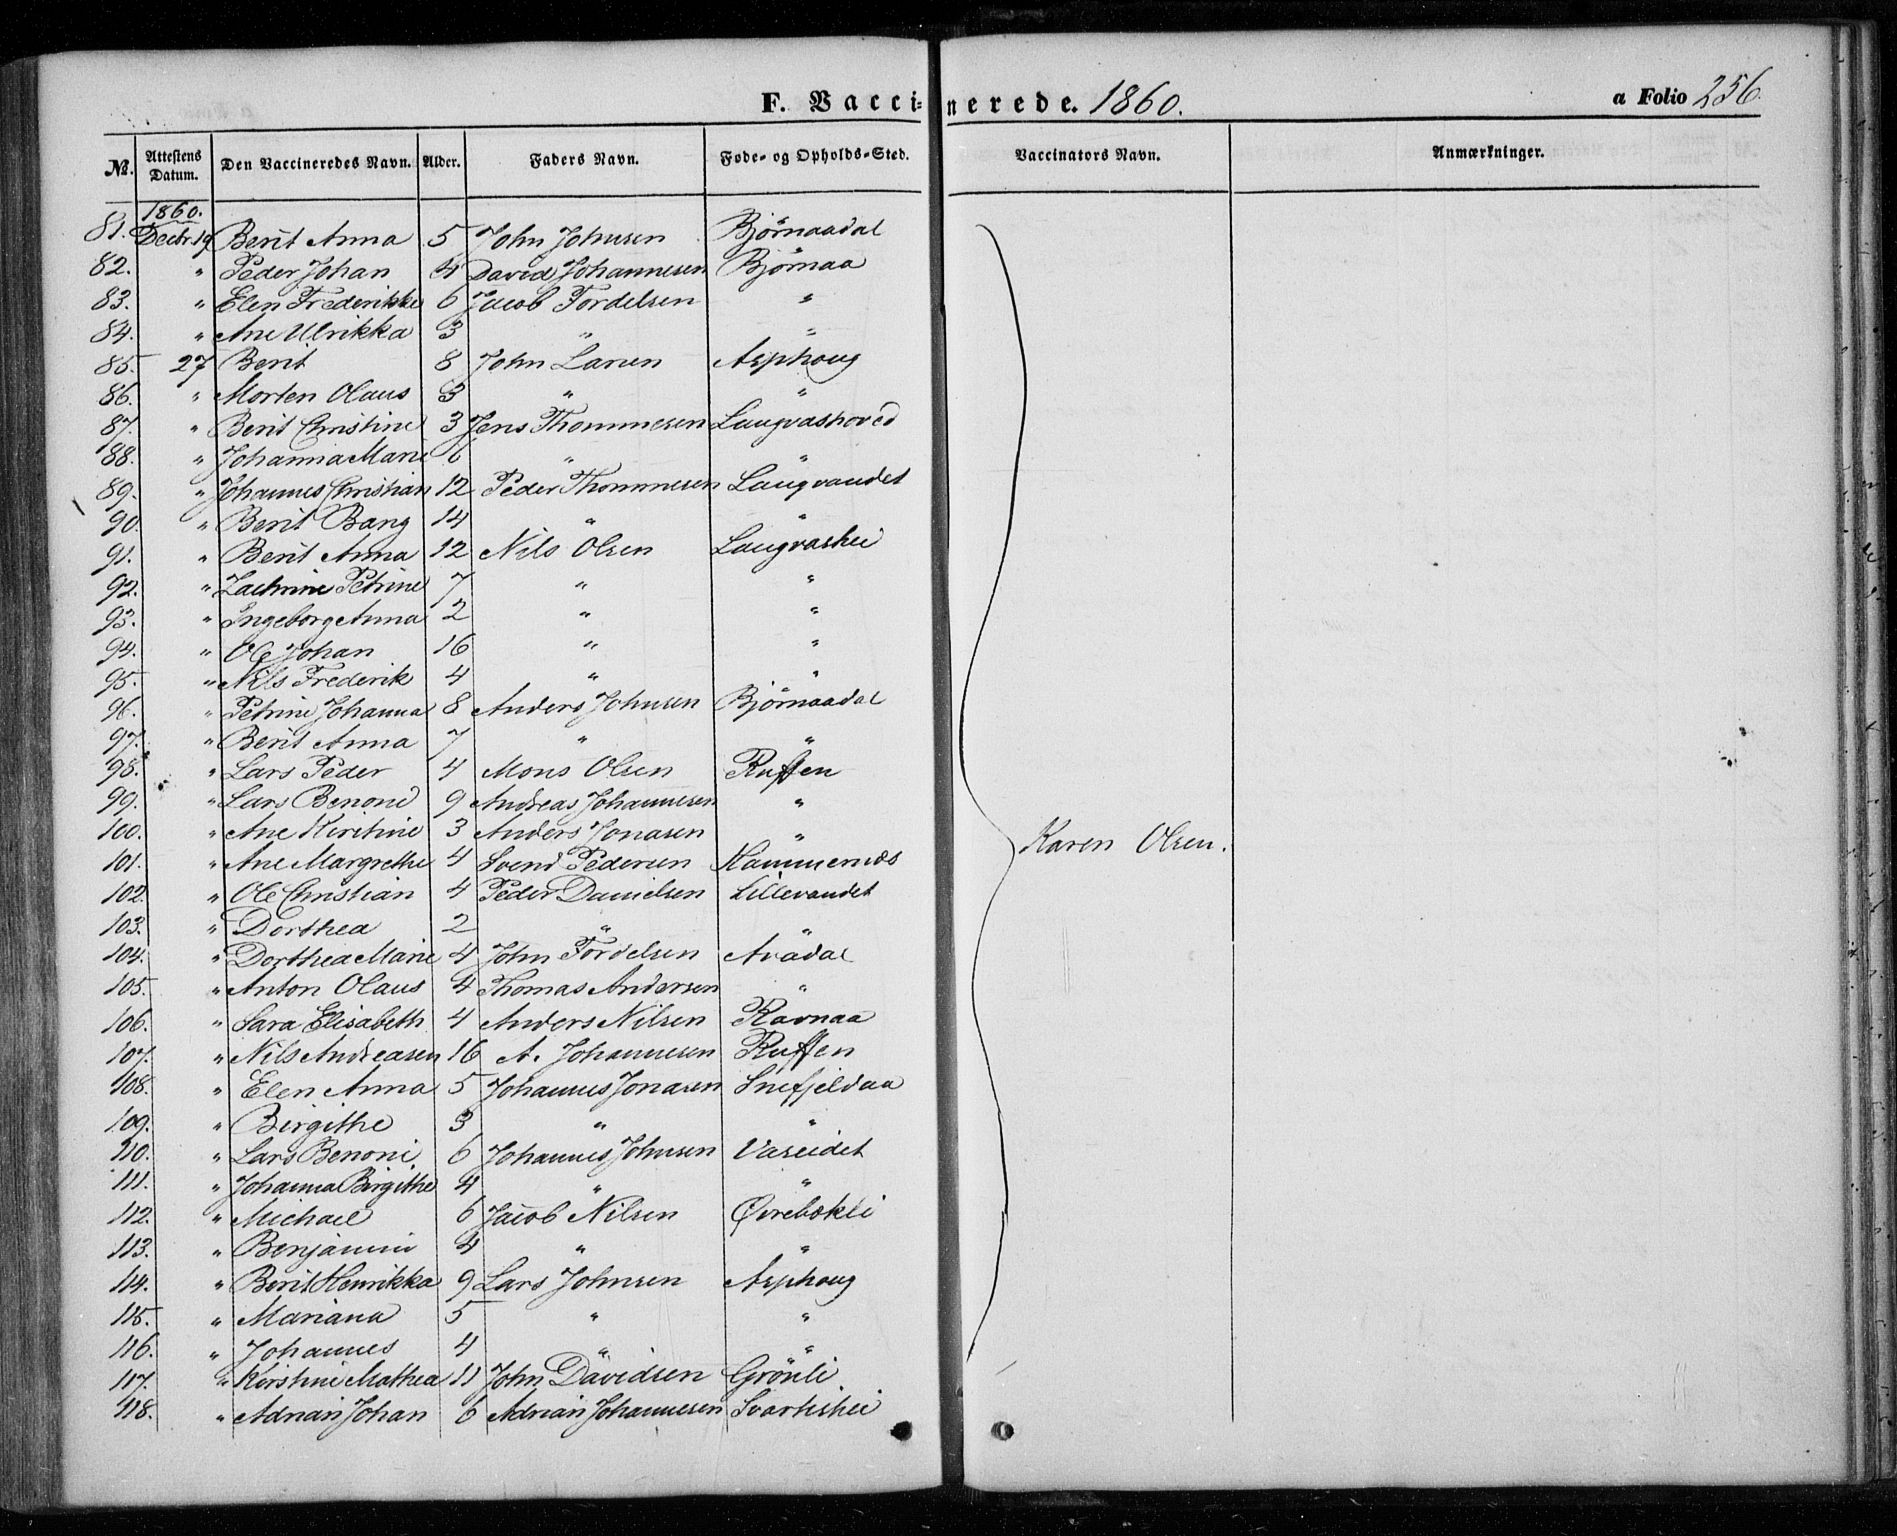 F. Vaccinerede. 1860. a Folio 256.
№. Attestens Datum. Den Vaccineredes Navn. Alder. Faders Navn. Føde- og Opholds-Sted. Vaccinators Navn. Anmærkninger.
1860.
81. Decbr. 19 Berit Anna 5 John Johnsen Bjørnaadal
82. " Peder Johan 4 David Johannesen Bjørnaa
83. " Elen Frederikke 6 Jacob Tordelsen "
84. " Ane Ulrikka 3 " "
85. 27 Berit 8 John Larsen Asphoug
86. " Morten Olaus 3 " "
87. " Berit Christine 3 Jens Thommesen Langvashoved
88. " Johanna Marie 6 " "
89. " Johannes Christian 12 Peder Thommesen Langvandet
90. " Berit Bang 14 " "
91. " Berit Anna 12 Nils Olsen Langvashei
92. " Petrine 7 " "
93. " Ingeborg Anna 2 " "
94. " Ole Johan 16 " "
95. " Nils Frederik 4 " "
96. " Petrine Johanna 8 Anders Johnsen Bjørnaadal
97. " Berit Anna 7 " "
98. " Lars Peder 4 Mons Olsen Ruffen
99. " Lars Benoni 9 Andreas Johannesen "
100. " Ane Kirstine 3 Anders Jonasen "
Karen Olsen.
101. " Ane Margrethe 4 Svend Pedersen Hammernæs
102. " Ole Christian 4 Peder Danielsen Lillevandet
103. " Dorthea 2 " "
104. " Dorthea Marie 4 John Tordelsen Avadal
105. " Anton Olaus 4 Thomas Andersen "
106. " Sara Elisabeth 4 Anders Nilsen Ravnaa
107. " Nils Andreasen 16 A. Johannesen Ruffen
108. " Elen Anna 5 Johannes Jonasen Snefjeldaa
109. " Birgithe 3 " "
110. " Lars Benoni 6 Johannes Johnsen Vaseidet
111. " Johanna Birgithe 4 " "
112. " Michael 6 Jacob Nilsen Øvrebækli
113. " Benjamin 4 " "
114. " Berit Henrikka 9 Lars Johnsen Asphoug
115. " Mariana 5 " "
116. " Johannes 4 " "
117. " Kirstine Mathea 11 John Davidsen Grønli
118. " Adrian Johan 6 Adrian Johannesen Svartishei